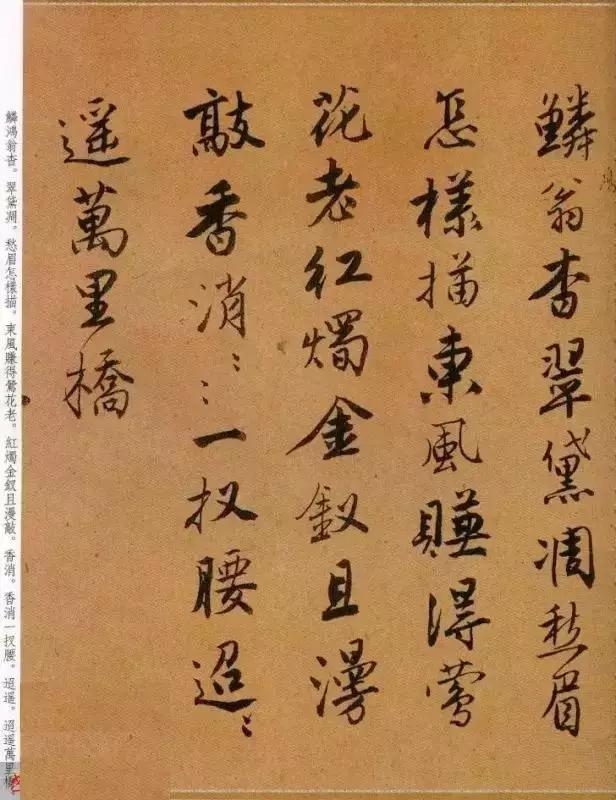 鴻
鱗翁杳翠黛凋愁眉
怎樣描東風賺得鶯
花老紅燭金釵且漫
敲香消〻〻一扠腰迢〻
遥萬里橋
鱗鴻翁杳。翠黛凋。愁眉怎樣描。東風賺得鶯花老。紅燭金釵且漫敲。香消。香消一扠腰。迢遥。迢遥萬里橋